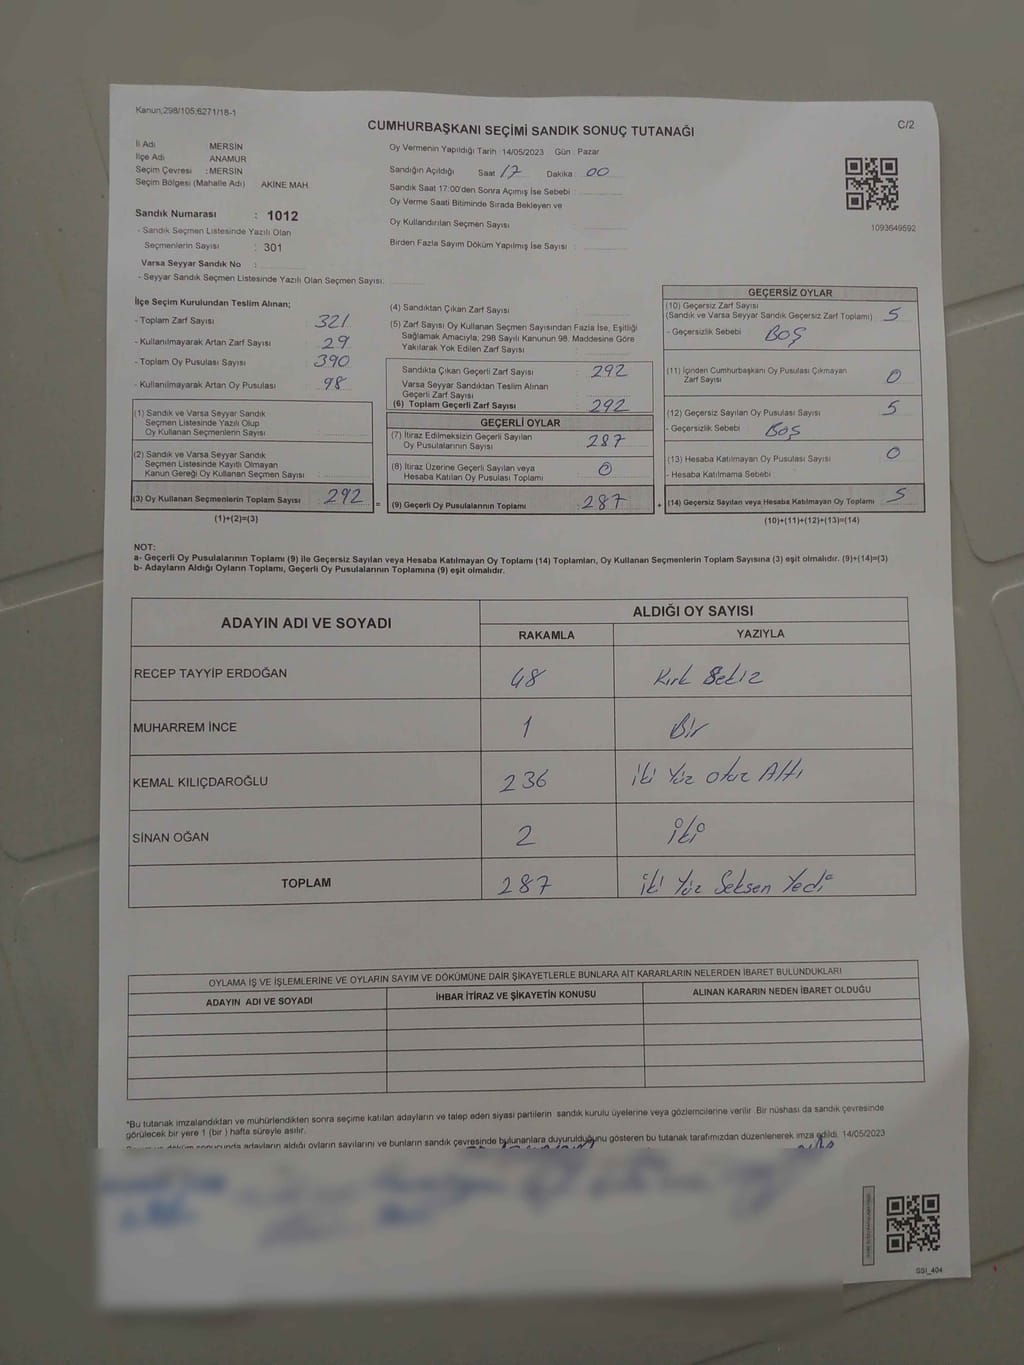 Kanun;298/105;6271/18-1
CUMHURBAŞKANI SEÇİMİ SANDIK SONUÇ TUTANAĞI
C/2
İl Adı MERSİN
İlçe Adı ANAMUR
Seçim Çevresi : MERSİN
Seçim Bölgesi (Mahalle Adı) AKİNE MAH.
Sandık Numarası : 1012
- Sandık Seçmen Listesinde Yazılı Olan
Seçmenlerin Sayısı : 301
Varsa Seyyar Sandık No :
- Seyyar Sandık Seçmen Listesinde Yazılı Olan Seçmen Sayısı:
Oy Vermenin Yapıldığı Tarih : 14/05/2023 Gün : Pazar
Sandığın Açıldığı Saat : 17 Dakika : 00
Sandık Saat 17:00'den Sonra Açımış İse Sebebi :
Oy Verme Saati Bitiminde Sırada Bekleyen ve
Oy Kullandırılan Seçmen Sayısı :
Birden Fazla Sayım Döküm Yapılmış İse Sayısı :
1093649592
İlçe Seçim Kurulundan Teslim Alınan;
- Toplam Zarf Sayısı : 321
- Kullanılmayarak Artan Zarf Sayısı : 29
- Toplam Oy Pusulası Sayısı : 390
- Kullanılmayarak Artan Oy Pusulası : 98
(1) Sandık ve Varsa Seyyar Sandık
Seçmen Listesinde Yazılı Olup
Oy Kullanan Seçmenlerin Sayısı :
(2) Sandık ve Varsa Seyyar Sandık
Seçmen Listesinde Kayıtlı Olmayan
Kanun Gereği Oy Kullanan Seçmen Sayısı :
(3) Oy Kullanan Seçmenlerin Toplam Sayısı : 292 =
(1)+(2)=(3)
(4) Sandıktan Çıkan Zarf Sayısı :
(5) Zarf Sayısı Oy Kullanan Seçmen Sayısından Fazla İse, Eşitliği
Sağlamak Amacıyla; 298 Sayılı Kanunun 98. Maddesine Göre
Yakılarak Yok Edilen Zarf Sayısı :
Sandıkta Çıkan Geçerli Zarf Sayısı : 292
Varsa Seyyar Sandıktan Teslim Alınan
Geçerli Zarf Sayısı :
(6) Toplam Geçerli Zarf Sayısı : 292
GEÇERLİ OYLAR
(7) İtiraz Edilmeksizin Geçerli Sayılan
Oy Pusulalarının Sayısı : 287
(8) İtiraz Üzerine Geçerli Sayılan veya
Hesaba Katılan Oy Pusulası Toplamı : 0
(9) Geçerli Oy Pusulalarının Toplamı : 287 +
GEÇERSİZ OYLAR
(10) Geçersiz Zarf Sayısı
(Sandık ve Varsa Seyyar Sandık Geçersiz Zarf Toplamı) : 5
- Geçersizlik Sebebi : BOŞ
(11) İçinden Cumhurbaşkanı Oy Pusulası Çıkmayan
Zarf Sayısı : 0
(12) Geçersiz Sayılan Oy Pusulası Sayısı : 5
- Geçersizlik Sebebi : BOŞ
(13) Hesaba Katılmayan Oy Pusulası Sayısı : 0
- Hesaba Katılmama Sebebi :
(14) Geçersiz Sayılan veya Hesaba Katılmayan Oy Toplamı : 5
(10)+(11)+(12)+(13)=(14)
NOT:
a- Geçerli Oy Pusulalarının Toplamı (9) ile Geçersiz Sayılan veya Hesaba Katılmayan Oy Toplamı (14) Toplamları, Oy Kullanan Seçmenlerin Toplam Sayısına (3) eşit olmalıdır. (9)+(14)=(3)
b- Adayların Aldığı Oyların Toplamı, Geçerli Oy Pusulalarının Toplamına (9) eşit olmalıdır.
ADAYIN ADI VE SOYADI ALDIĞI OY SAYISI
RAKAMLA YAZIYLA
RECEP TAYYİP ERDOĞAN 48 Kırk Sekiz
MUHARREM İNCE 1 Bir
KEMAL KILIÇDAROĞLU 236 iki Yüz otuz Altı
SİNAN OĞAN 2 iki
TOPLAM 287 iki Yüz Seksen Yedi
OYLAMA İŞ VE İŞLEMLERİNE VE OYLARIN SAYIM VE DÖKÜMÜNE DAİR ŞİKAYETLERLE BUNLARA AİT KARARLARIN NELERDEN İBARET BULUNDUKLARI
ADAYIN ADI VE SOYADI İHBAR İTİRAZ VE ŞİKAYETİN KONUSU ALINAN KARARIN NEDEN İBARET OLDUĞU
*Bu tutanak imzalandıktan ve mühürlendikten sonra seçime katılan adayların ve talep eden siyasi partilerin sandık kurulu üyelerine veya gözlemcilerine verilir. Bir nüshası da sandık çevresinde
görülecek bir yere 1 (bir) hafta süreyle asılır.
adayların aldığı oyların sayılarını ve bunların sandık çevresinde bulunanlara duyurulduğunu gösteren bu tutanak tarafımızdan düzenlenerek imza edildi. 14/05/2023
GSI_404